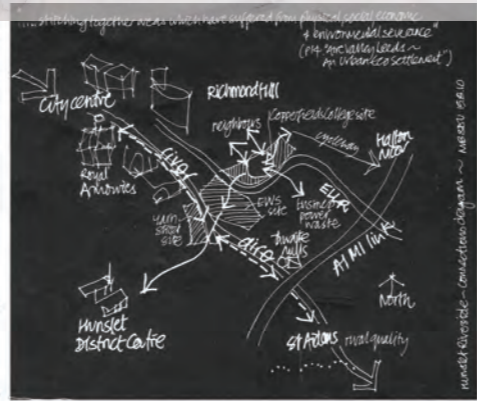 ".... stitching together areas which have suffered from physical, social, economic
& environmental severance"
(p14 Aire Valley Leeds ~
An Urban Eco Settlement")
City centre
Richmond Hill
neighbours
Copperfields College site
cycleway
Halton Moor
Royal
Armouries
river
EWS
site
Yarn
street
site
power
waste
EUR
thwaite
mills
aire
A1 M1 link
North
Hunslet
District Centre
St Aidans rural quality
Hunslet Riverside ~ connections diagram ~